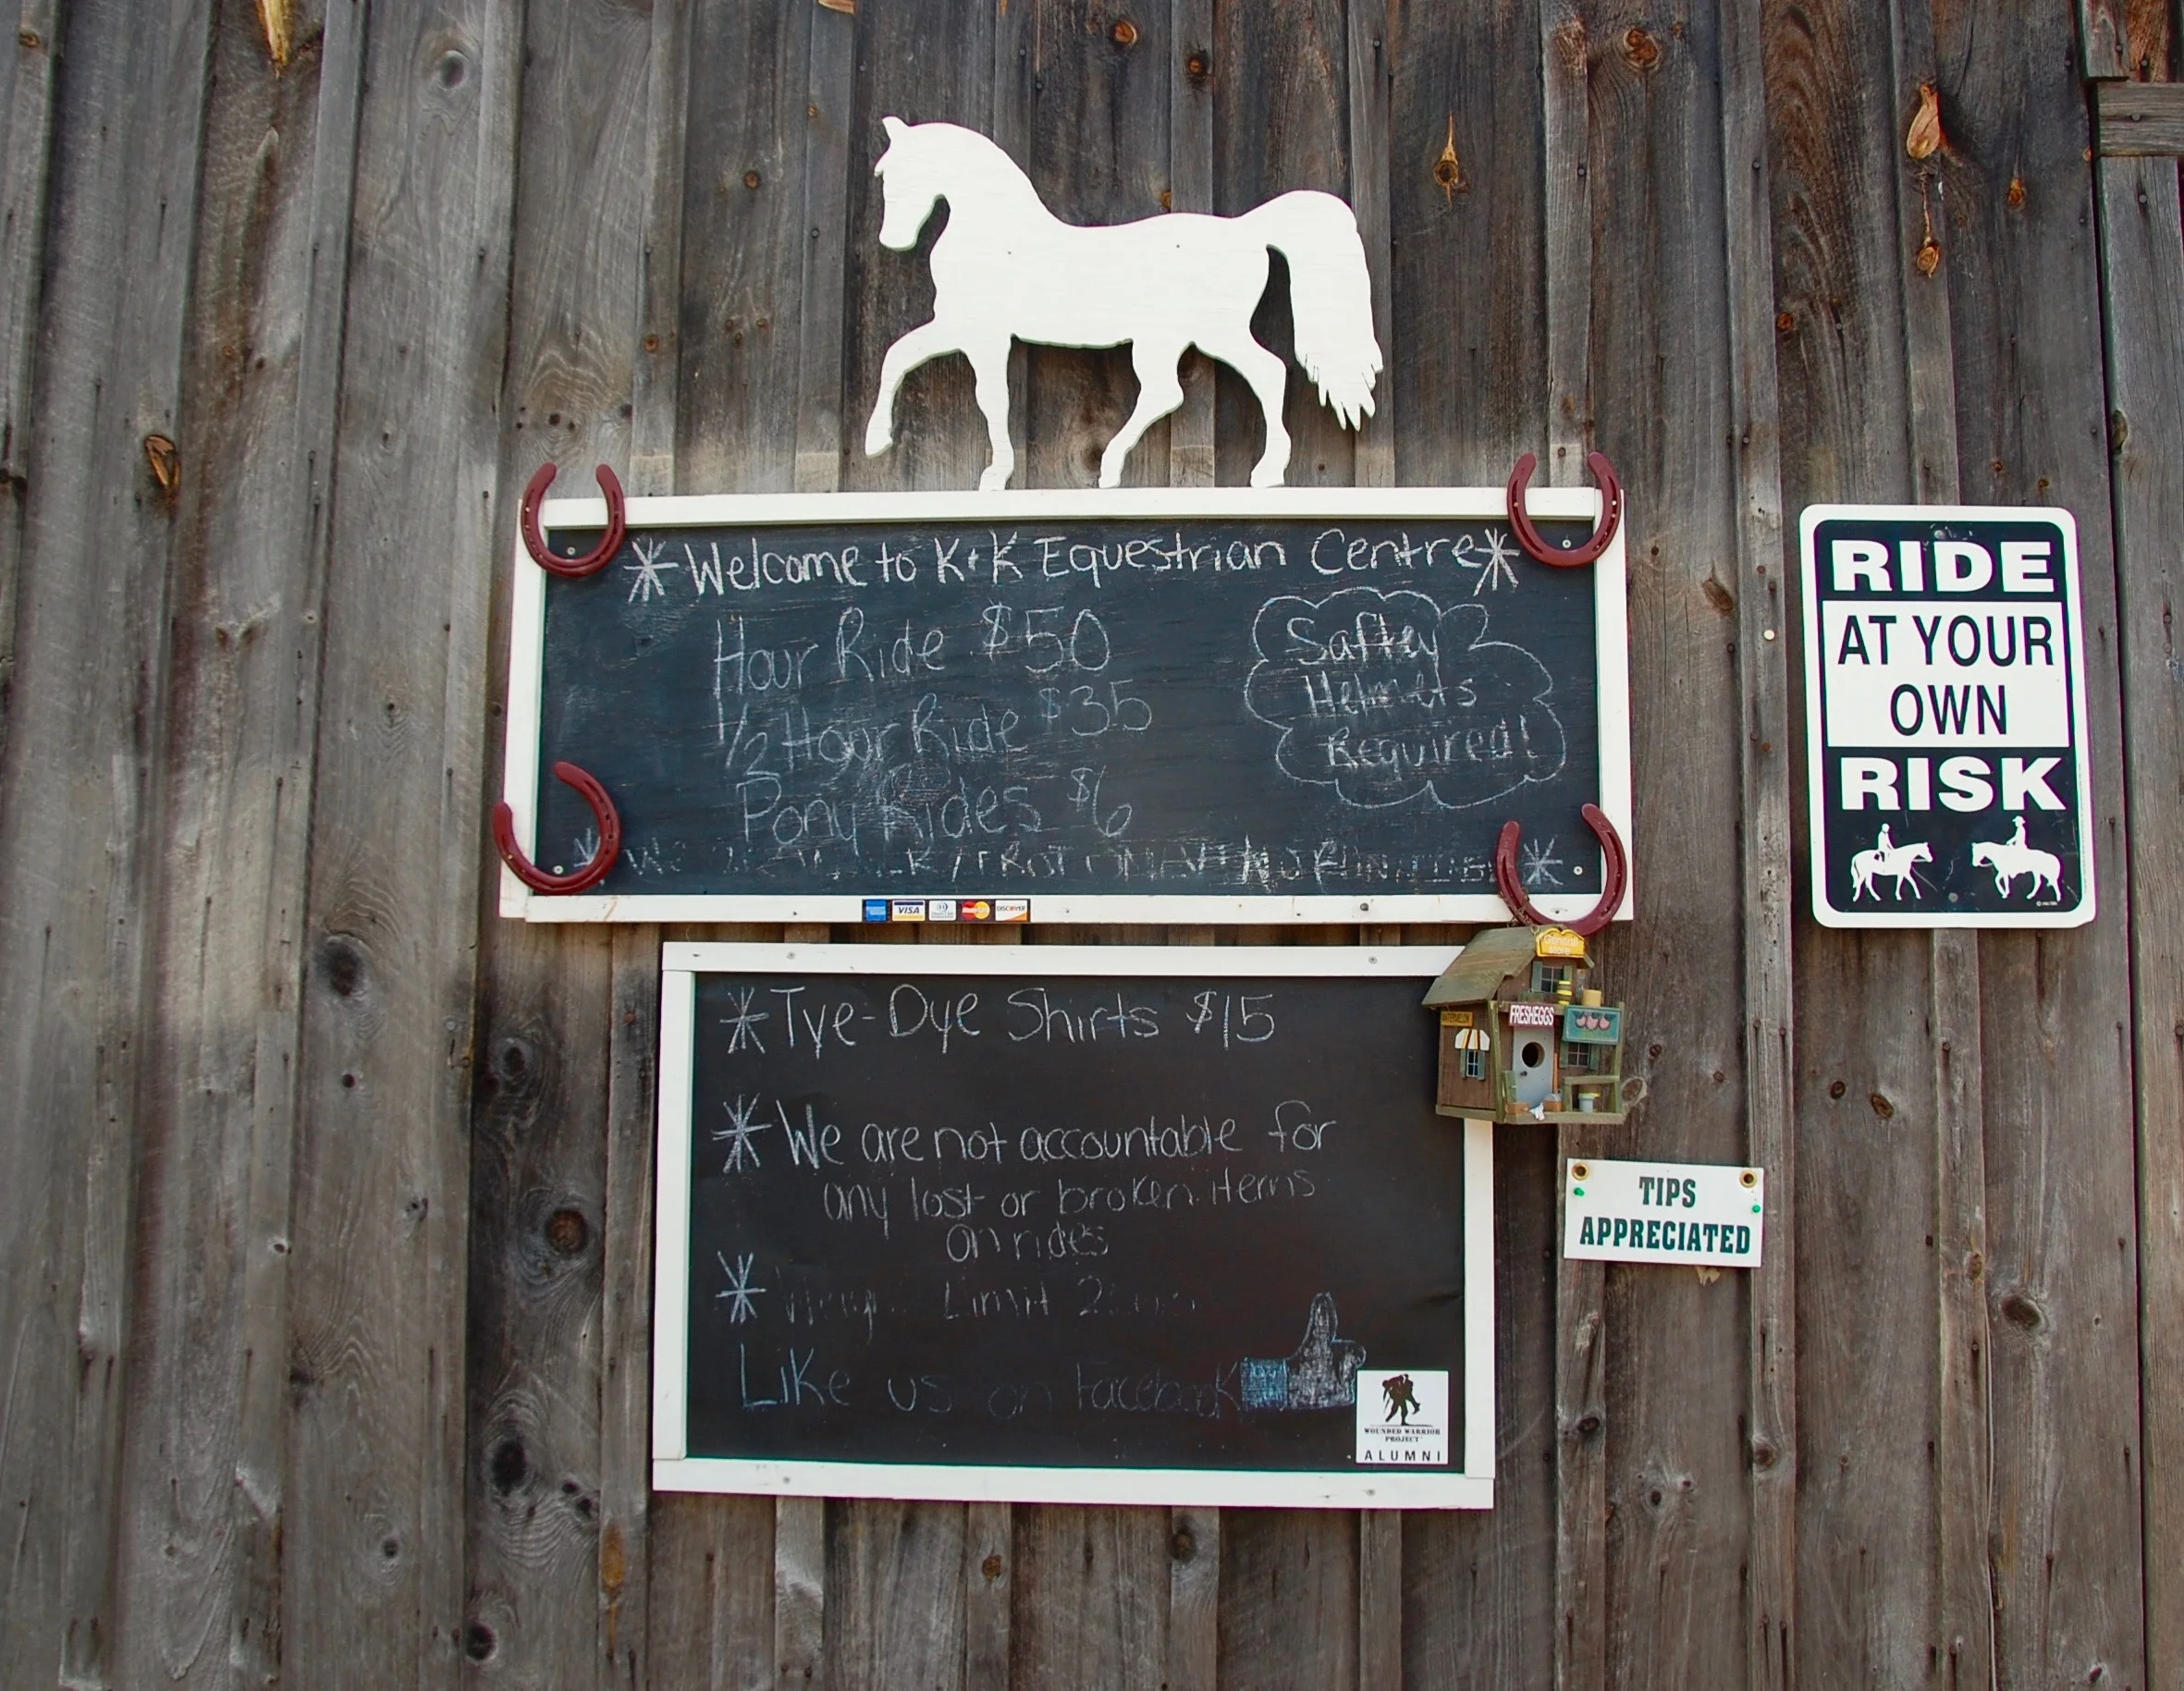 *Welcome to K+K Equestrian Centre*
Hour Ride $50
1/2 Hour Ride $35
Pony Rides $6
Safty
Helmets
Required!
* We WALK/TROT ONLY NO RUNNING *
VISA
MasterCard
DISCOVER
RIDE
AT YOUR
OWN
RISK
*Tye-Dye Shirts $15
*We are not accountable for
any lost or broken items
on rides
* Limit
Like us on Facebook
WOUNDED WARRIOR
PROJECT
ALUMNI
WATERMELON
FRESH EGGS
TIPS
APPRECIATED